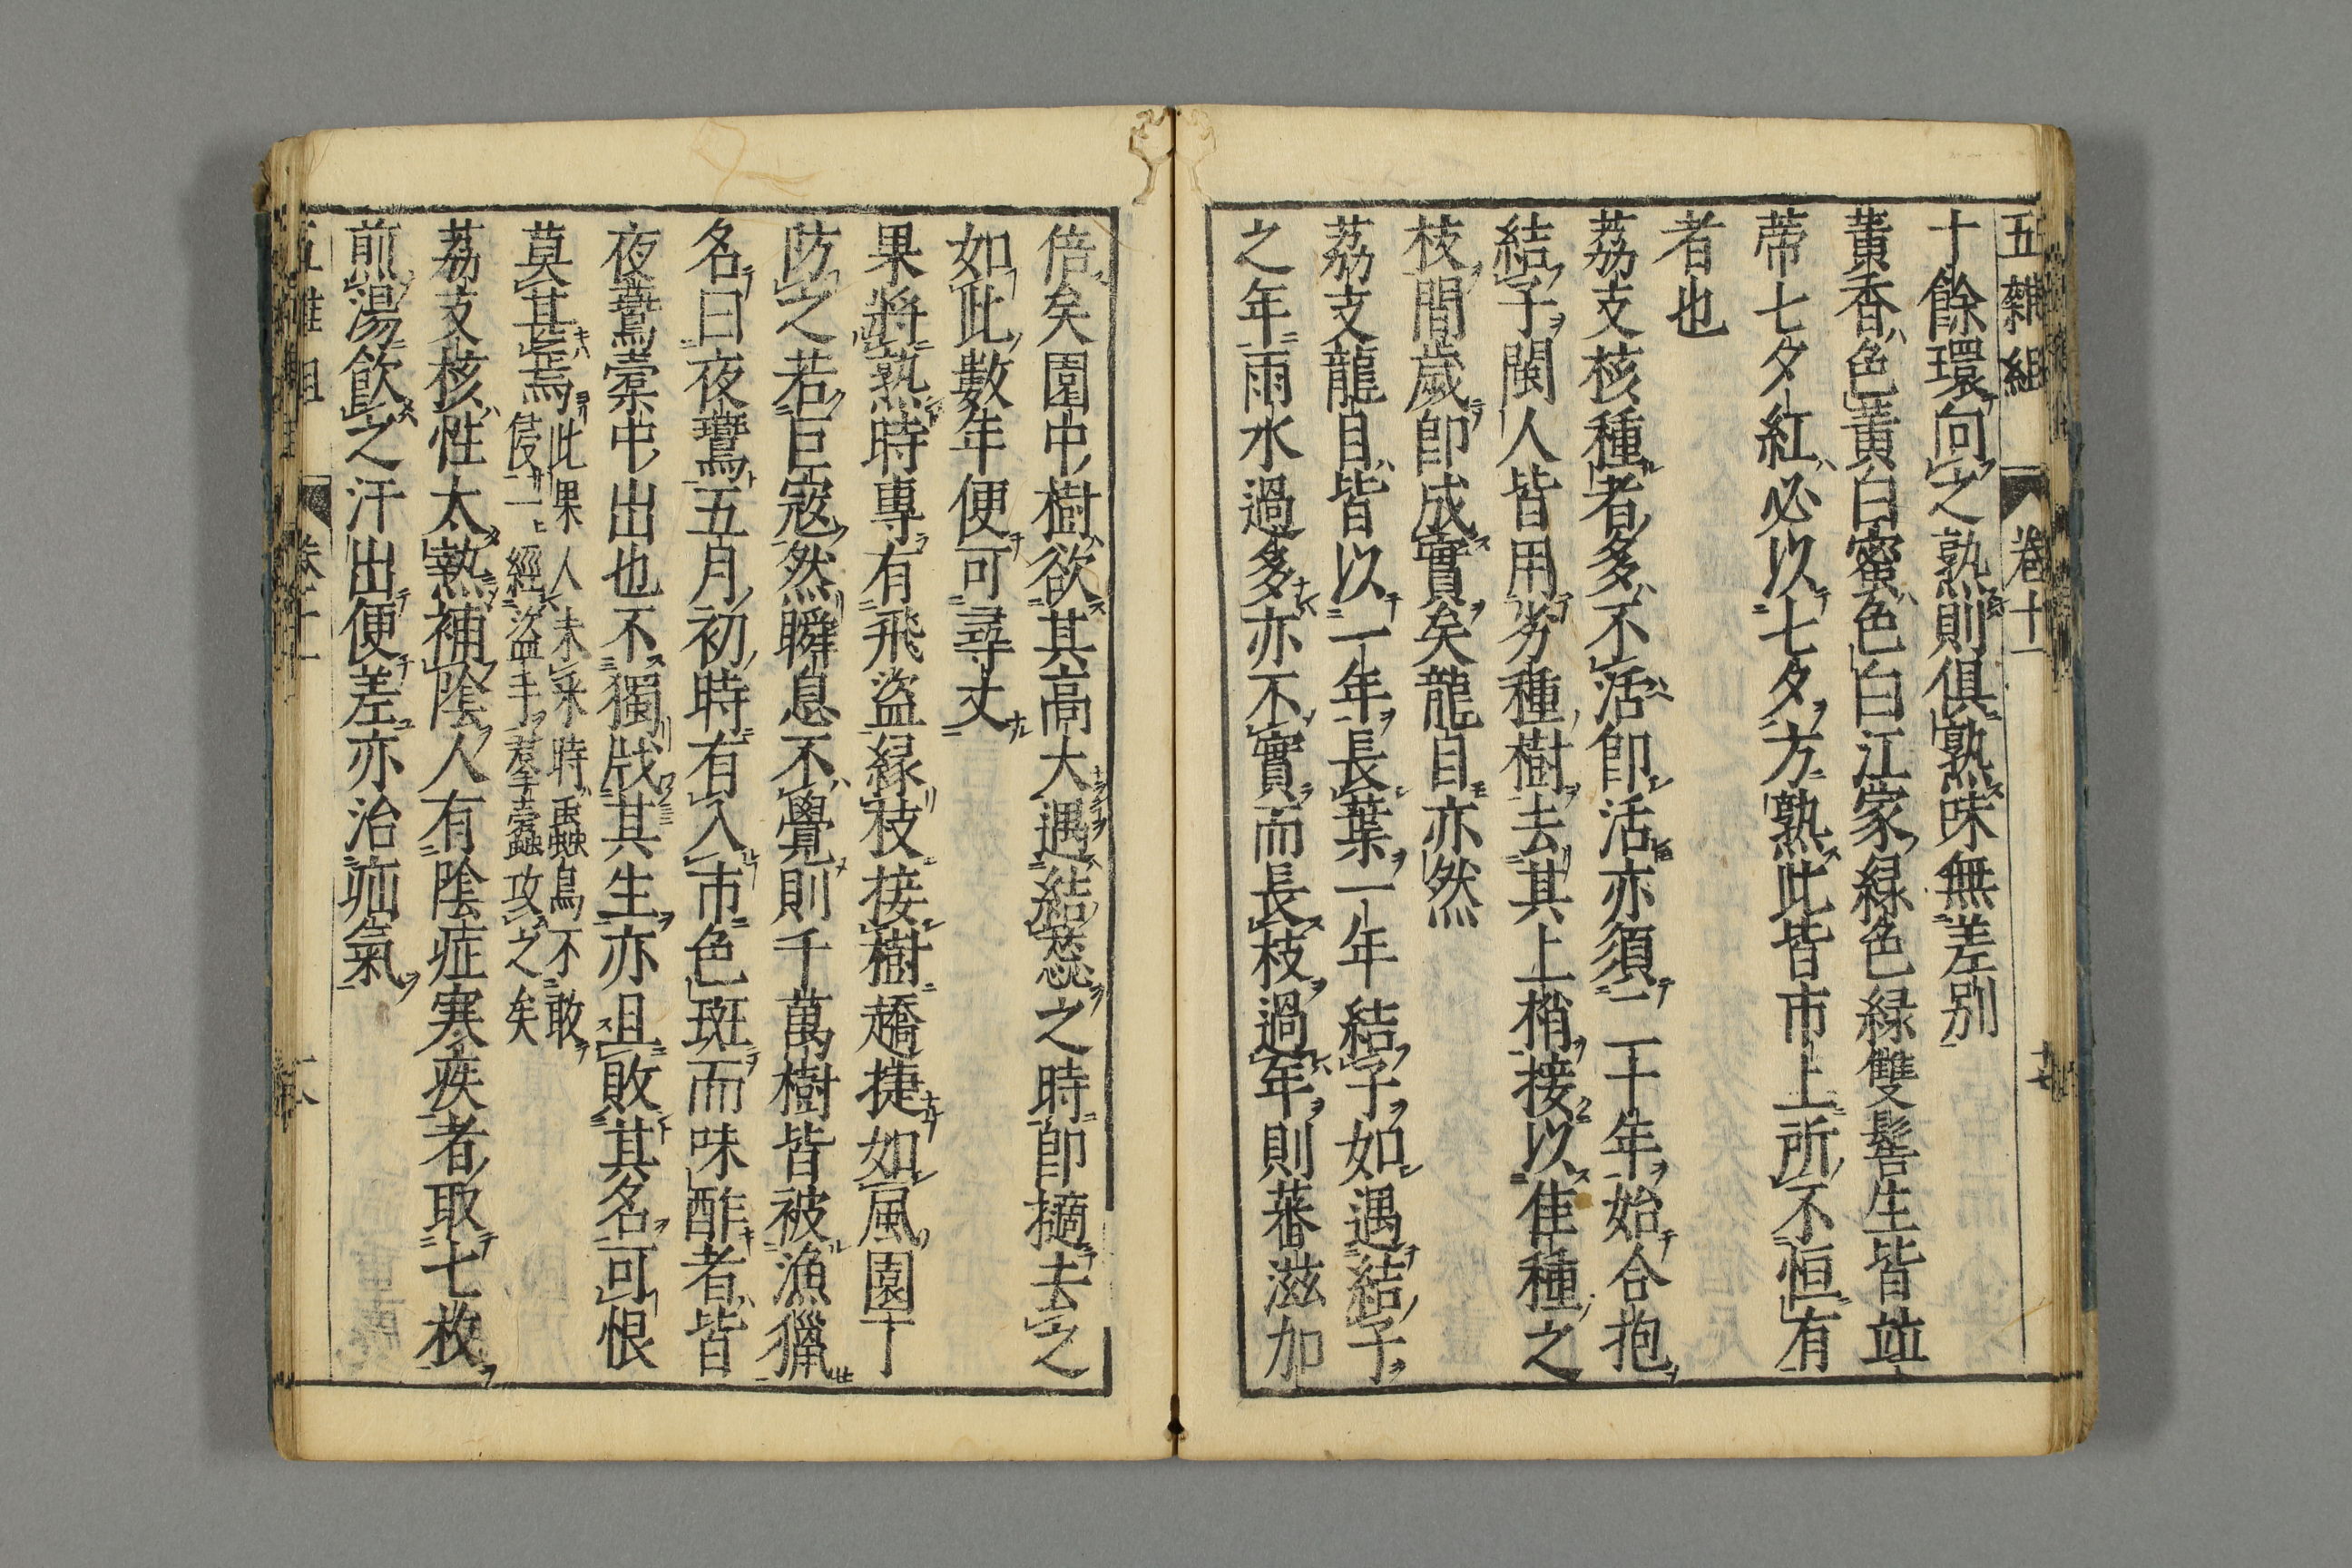 五雜組 卷十一
十餘環向之熟則俱熟味無差別
黄香色黄白蜜色白江家綠色綠雙髻生皆並
蒂七夕紅必以七夕方熟此皆市上所不恒有
者也
荔支核種者多不活即活亦須二十年始合抱
結子閩人皆用劣種樹去其上梢接以佳種之
枝間歲即成實矣龍目亦然
荔支龍目皆以一年長葉一年結子如遇結子
之年雨水過多亦不實而長枝過年則蕃滋加
倍矣園中樹欲其高大遇結蕊之時即摘去之
如此數年便可尋丈
果將熟時專有飛盜緣枝接樹趫捷如風園丁
防之若巨寇然瞬息不覺則千萬樹皆被漁獵
名曰夜鷰五月初時有入市色斑而味酢者皆
夜鷰橐中出也不獨戕其生亦且敗其名可恨
莫甚焉
此果人未采時禽蟲鳥不敢
侵一經盜手羣蠹攻之矣
荔支核性太熱補陰人有陰症寒疾者取七枚
煎湯飲之汗出便差亦治疝氣
五雜組 卷十一